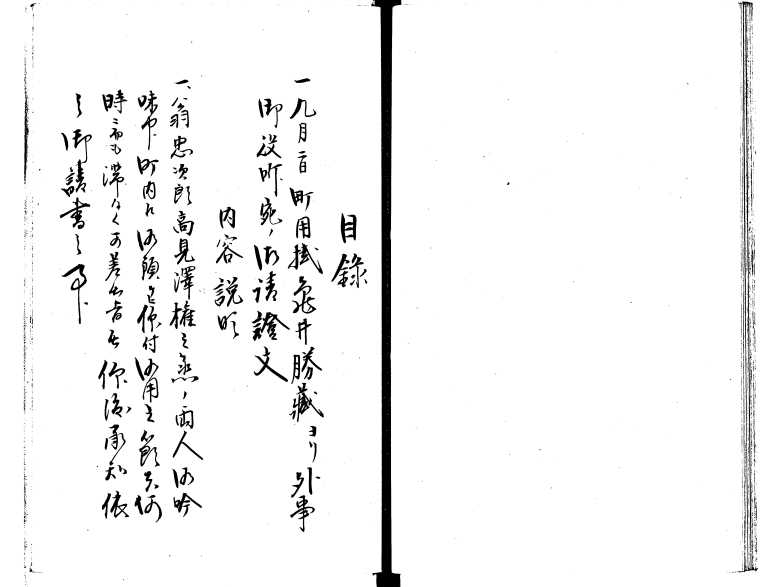 目錄
一九月二日町用掛亀井勝藏ヨリ外事
御役所宛ノ御請證文
内容説明
一、翁忠次郎高見澤権之丞ノ両人御吟
味中町内江御預ケ被仰付御用之節者何
時ニ而も滞りなく可差出旨被仰渡承知依
之御請書之事